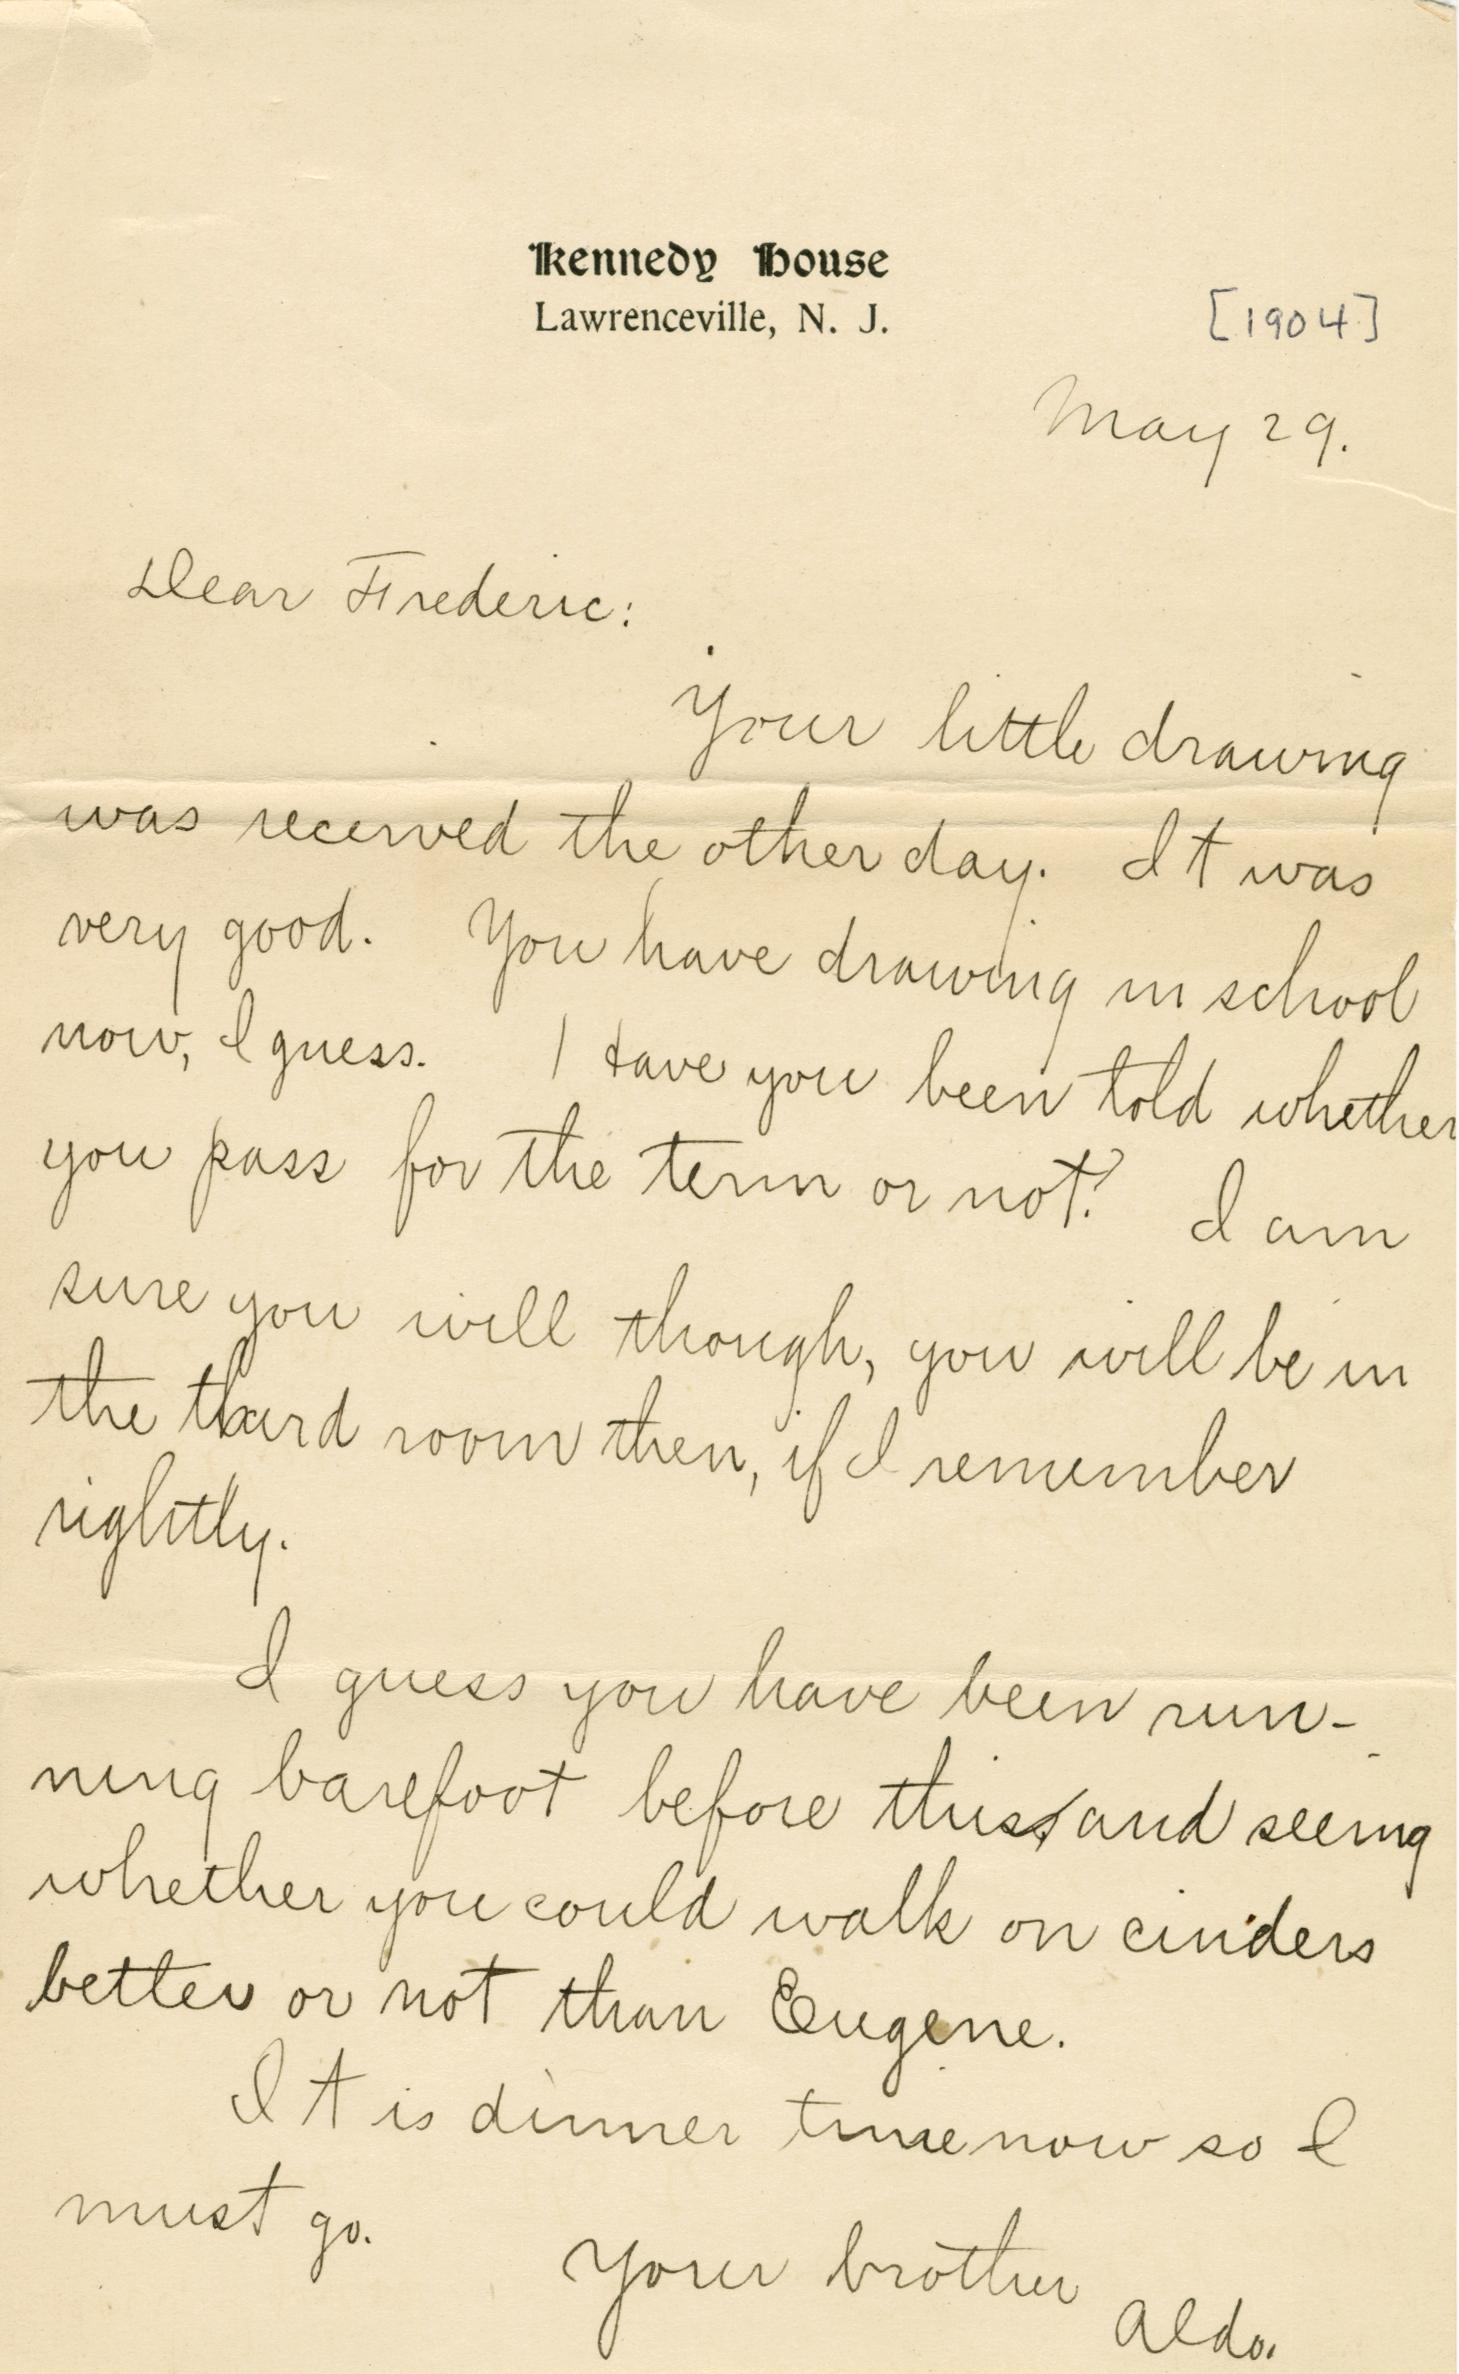 Kennedy House
Lawrenceville, N. J.
[1904]
May 29.
Dear Frederic:
Your little drawing
was received the other day. It was
very good. You have drawing in school
now, I guess. Have you been told whether
you pass for the term or not? I am
sure you will though, you will be in
the third room then, if I remember
rightly.
I guess you have been run-
ning barefoot before this and seeing
whether you could walk on cinders
better or not than Eugene.
It is dinner time now so I
must go.
Your brother
Aldo.